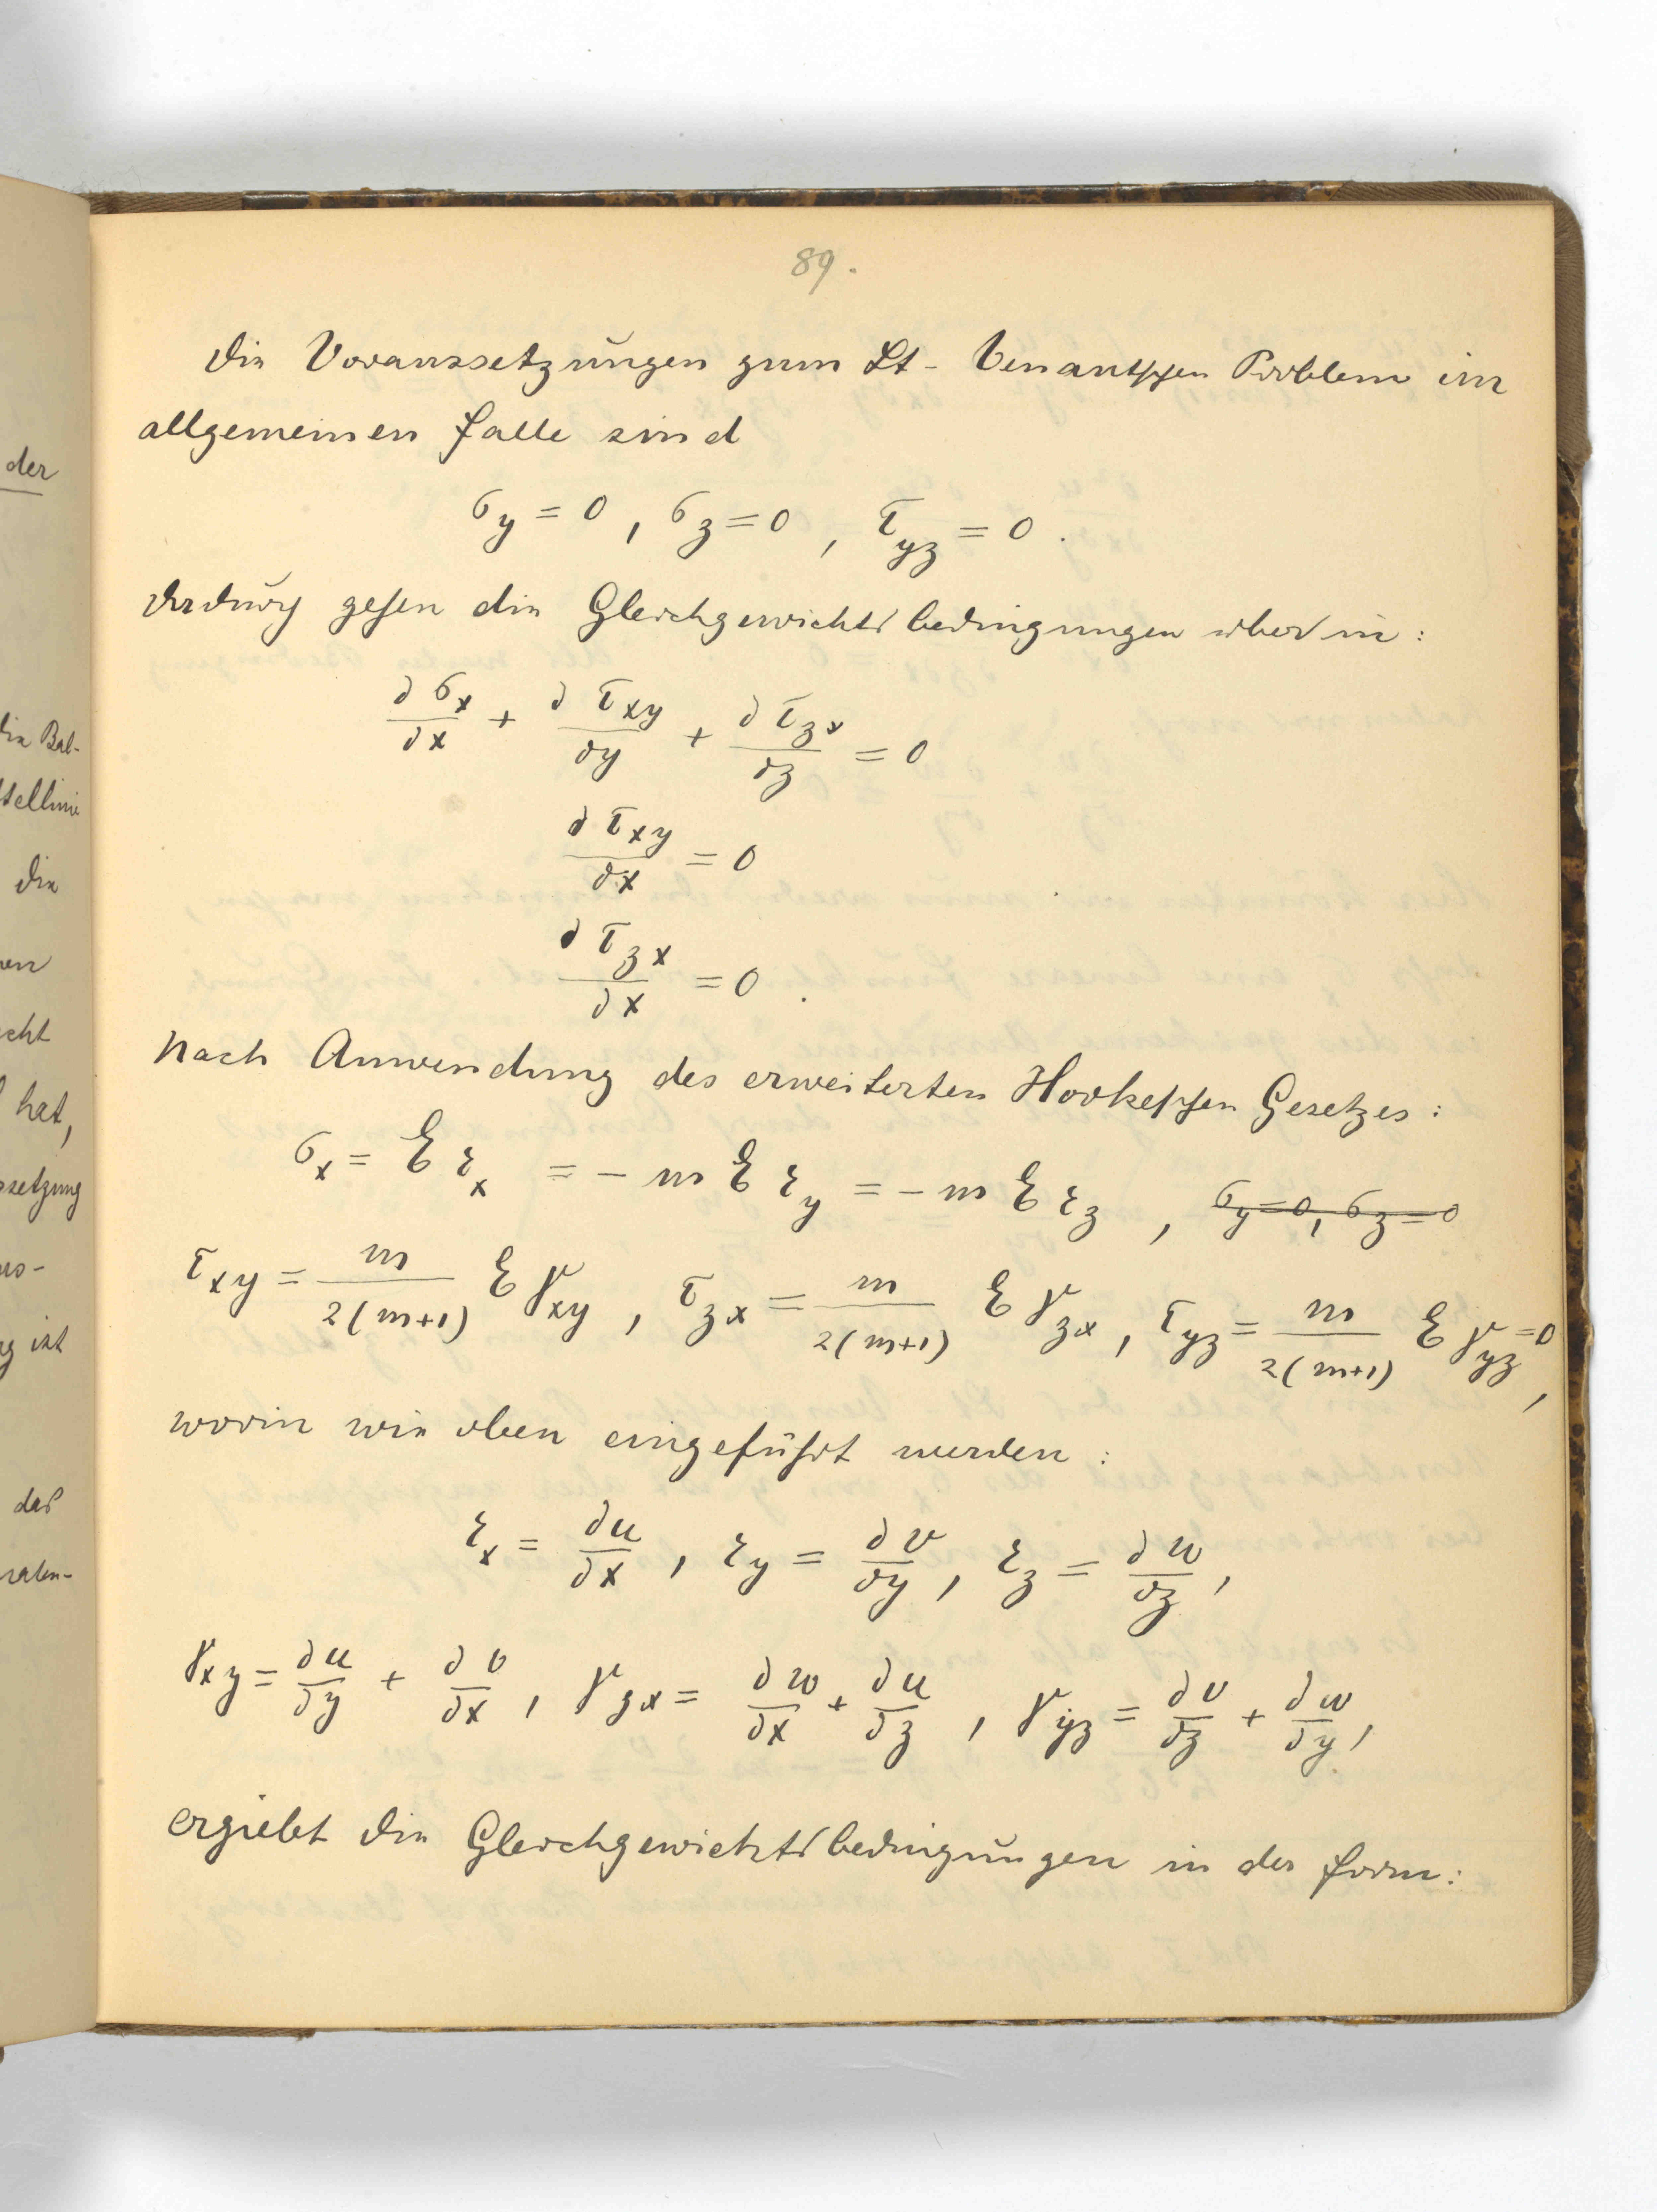 der
die Bal-
stellini
die
nen
cht
hat,
ssetzung
us-
ng ist
das
raten-
89.
Die Voraussetzungen zum St-Venantschen Problem im
allgemeinen Falle sind
σ_y = 0 , σ_z = 0 , τ_yz = 0 .
Dadurch gehen die Gleichgewichtsbedingungen über in :
∂σ_x/∂x + ∂τ_xy/∂y + ∂τ_zx/∂z = 0
∂τ_xy/∂x = 0
∂τ_zx/∂x = 0 .
Nach Anwendung des erweiterten Hookeschen Gesetzes :
σ_x = E ε_x = - m E ε_y = - m E ε_z , σ_y = 0, σ_z = 0
τ_xy = m/2(m+1) E γ_xy , τ_zx = m/2(m+1) E γ_zx , τ_yz = m/2(m+1) E γ_yz = 0 ,
worin wie oben eingeführt werden :
ε_x = ∂u/∂x , ε_y = ∂v/∂y , ε_z = ∂w/∂z ,
γ_xy = ∂u/∂y + ∂v/∂x , γ_zx = ∂w/∂x + ∂u/∂z , γ_yz = ∂v/∂z + ∂w/∂y ,
ergiebt die Gleichgewichtsbedingungen in der Form :